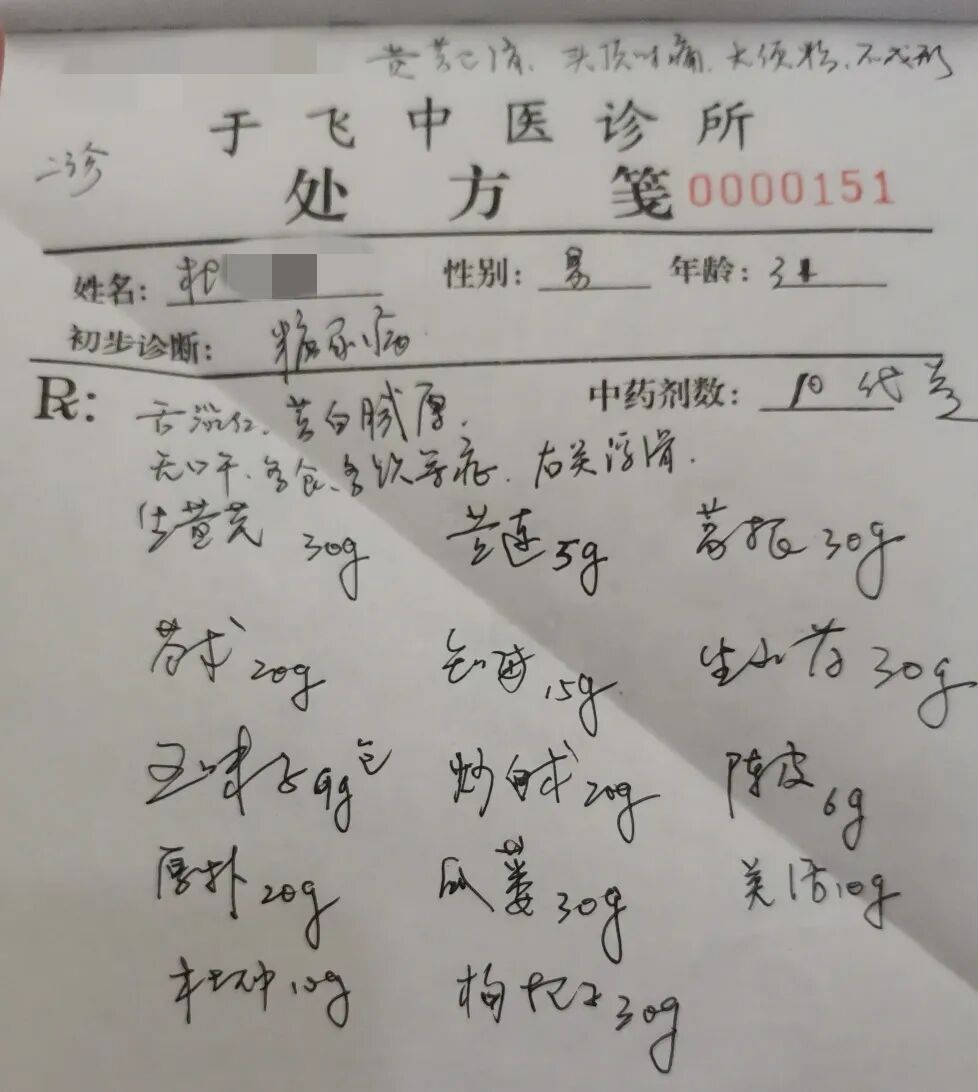 黄苔已消、头顶吋痛、大便粘、不成形
于飞中医诊所
二诊
处方笺 0000151
姓名: 性别: 男 年龄: 34
初步诊断: 糖尿病
R: 中药剂数: 10 代煎
舌淡红、苔白腻厚,
无口干、多食、多饮等症、右关浮滑.
生黄芪 30g 黄连 5g 葛根 30g
苍术 20g 知母 15g 生山药 30g
五味子 9g 包 炒白术 20g 陈皮 6g
厚朴 20g 瓜蒌 30g 羌活 10g
杜仲 10g 枸杞子 30g